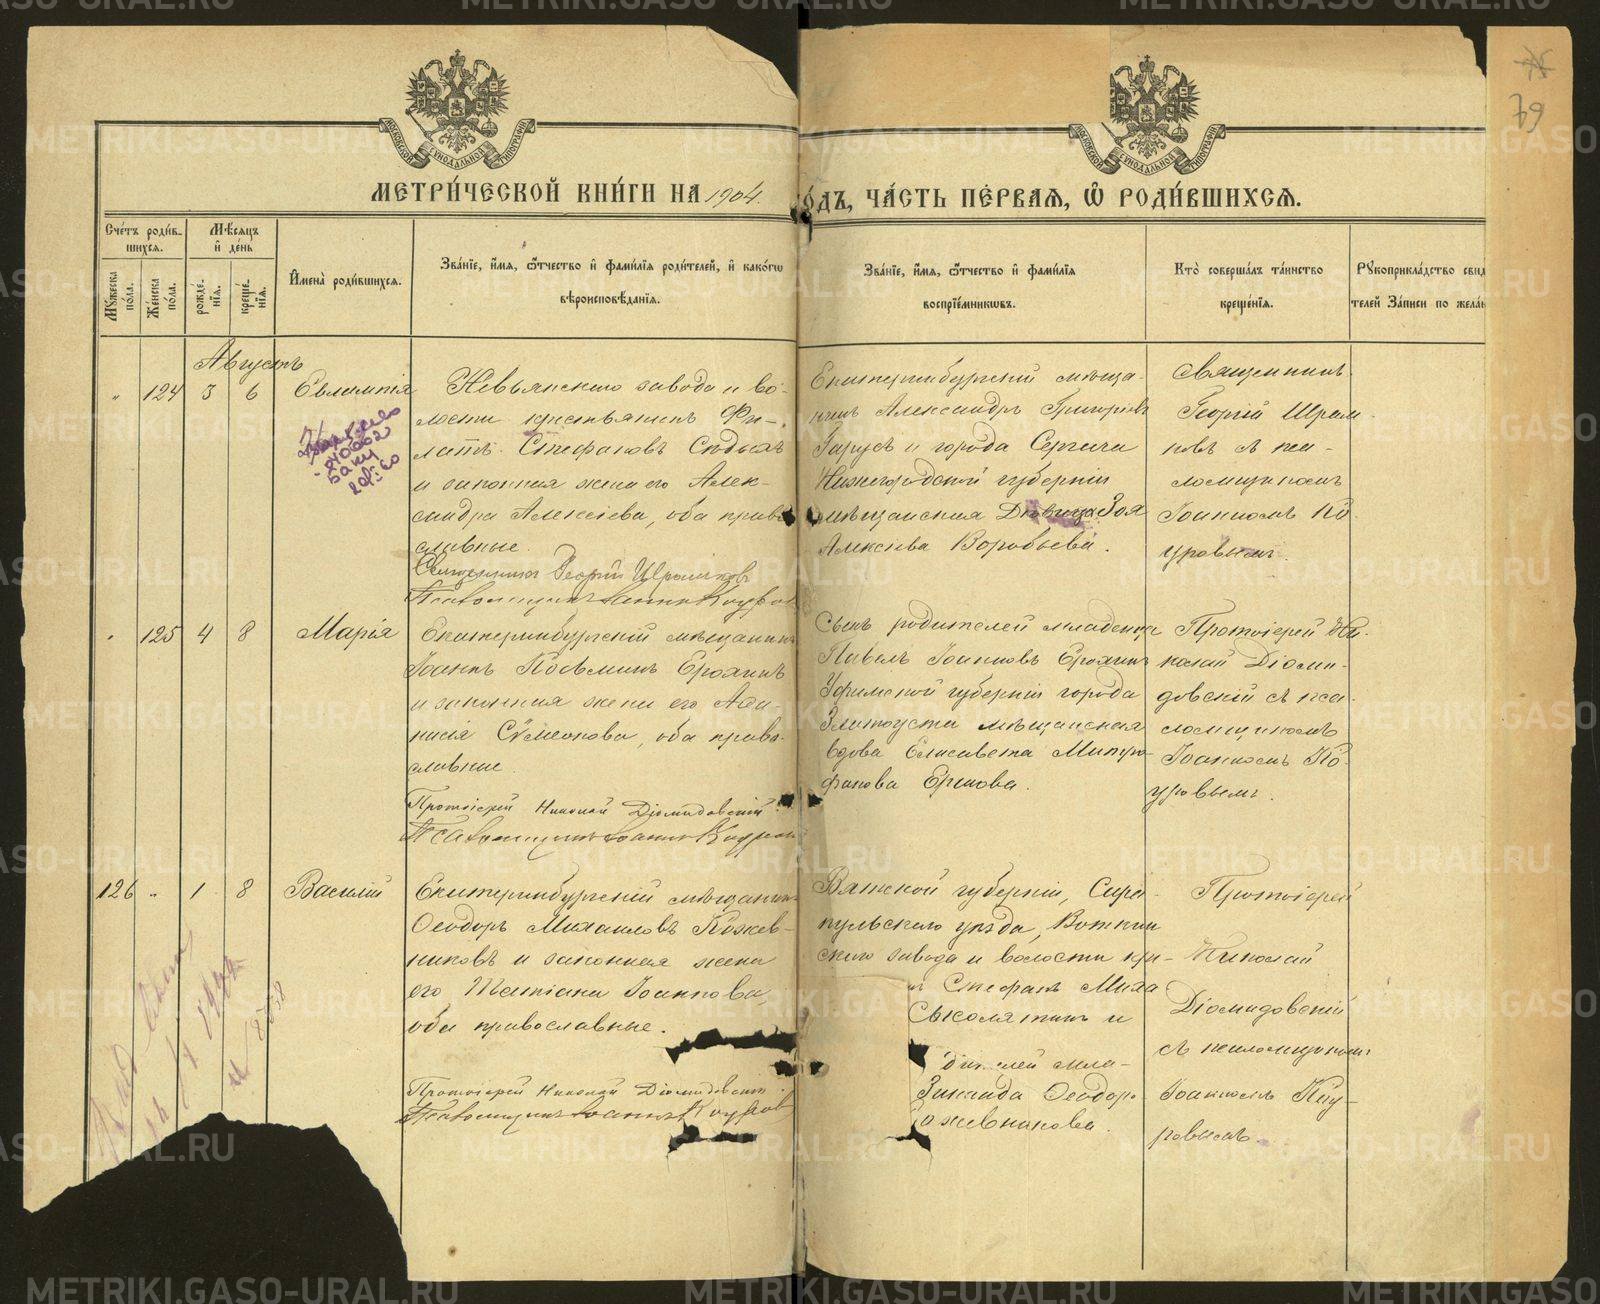 МЕТРИ́ЧЕСКОЙ КНИ́ГИ НА 1904
ГО́ДЪ, ЧА́СТЬ ПЕ́РВАЯ, Ѡ҆ РОДИ́ВШИХСЯ.
МОСКОВСКОЙ СѴНОДАЛЬНОЙ ТИПОГРАФІИ
МОСКОВСКОЙ СѴНОДАЛЬНОЙ ТИПОГРАФІИ
79
Сче́тъ роди́в-
шихся.
Мѣ́сяцъ
и҆ де́нь
Му́жеска по́ла.
Же́нска по́ла.
рожде́нія.
креще́нія.
И҆мена̀ роди́вшихся.
Зва́ніе, и҆́мя, ѻ҆́тчество и҆ фами́лія роди́телей, и҆ како́гѡ
вѣроисповѣ́данія.
Зва́ніе, и҆́мя, ѻ҆́тчество и҆ фами́лія
воспріе́мникѡвъ.
Кто̀ соверша́лъ та́инство
креще́нія.
Рꙋкоприкла́дство свид
телей За́писи по жела́н
Августъ
" 124 3 6 Евлампія
Невьянскаго завода и во-
лости крестьянинъ Фи-
латъ Стефановъ Сѣдыхъ
и законная жена его Алек-
сандра Алексіева, оба право
славные.
Священникъ Георгій Шрамковъ
Псаломщикъ Іоаннъ Кауров
Екатеринбургскій мѣща-
нинъ Александръ Григорьевъ
Гарусъ и города Сергача
Нижегородской губерніи
мѣщанская Дѣвица Зоя
Алексѣева Воробьева.
Священникъ
Георгій Шрам-
ковъ съ пса-
ломщикомъ
Іоанномъ Ка-
уровымъ.
" 125 4 8 Марія
Екатеринбургскій мѣщанинъ
Іоаннъ Косьминъ Ерохинъ
и законная жена его Ага-
Сѵмеонова, оба право-
славные.
Протоіерей Николай Діомидовскій
Псаломщикъ Іоаннъ Кауров
Сынъ родителей младенца
Павелъ Іоанновъ Ерохинъ
Уфимской губерніи города
Златоуста мѣщанская
вдова Елисавета Митро-
фанова Ершова.
Протоіерей Ни-
колай Діоми-
довскій съ пса-
ломщикомъ
Іоанномъ Ка-
уровымъ.
126 " 1 8 Василій
Екатеринбургскій мѣщанинъ
Ѳеодоръ Михаиловъ Кожев-
никовъ и законная жена
его Татіана Іоаннова,
оба православные.
Протоіерей Николай Діомидовскій
Псаломщикъ Іоаннъ Кауров
Вятской губерніи, Сара-
пульскаго уѣзда, Воткин
скаго завода и волости кре-
нъ Стефанъ Миха
и
дителей мла-
Зинаида Ѳеодор
ожевникова.
Протоіерей
Николай
Діомидовскій
съ псаломщикомъ
Іоанномъ Кау-
ровымъ.
METRIKI.GASO-URAL.RU